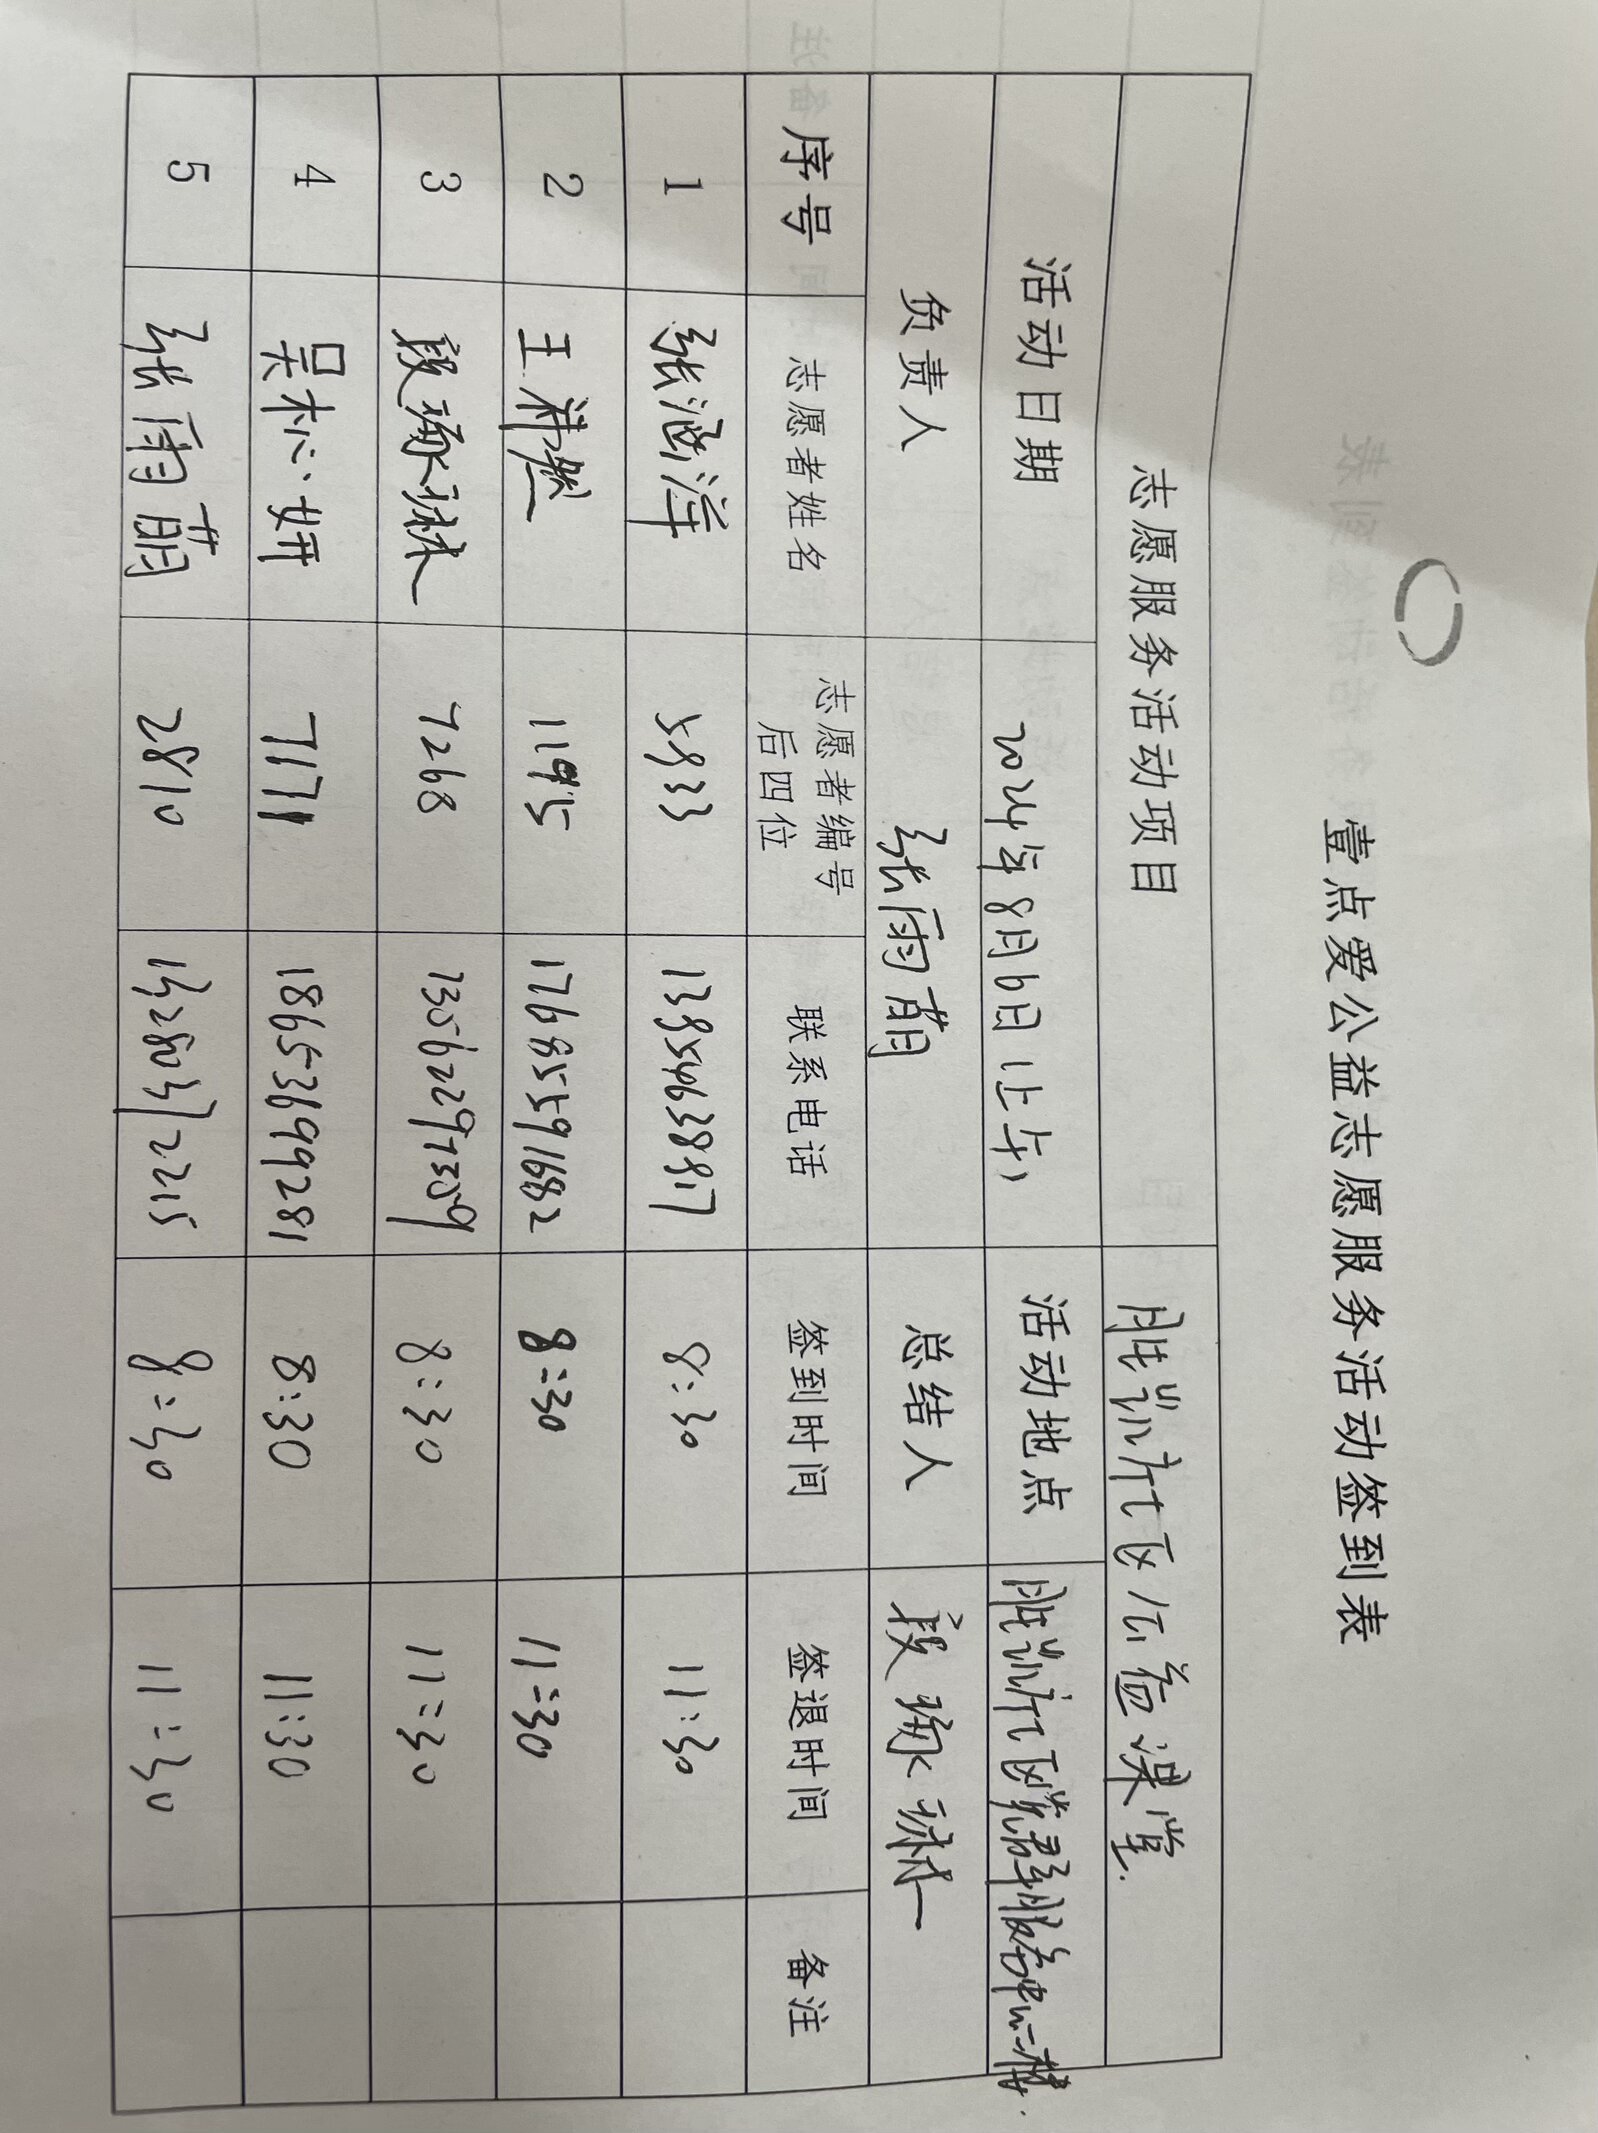 壹点爱公益志愿服务活动签到表
志愿服务活动项目 胜利社区公益课堂.
活动日期 2024年8月6日上午 活动地点 胜利社区党群服务中心二楼.
负责人 张雨萌 总结人 段琢琳
序号 志愿者姓名 志愿者编号后四位 联系电话 签到时间 签退时间 备注
1 张涵洋 5833 13854638817 8:30 11:30
2 王 1195 17685591682 8:30 11:30
3 段琢琳 7268 8:30 11:30
4 吴杺妍 7171 18653699281 8:30 11:30
5 张雨萌 2810 8:30 11:30